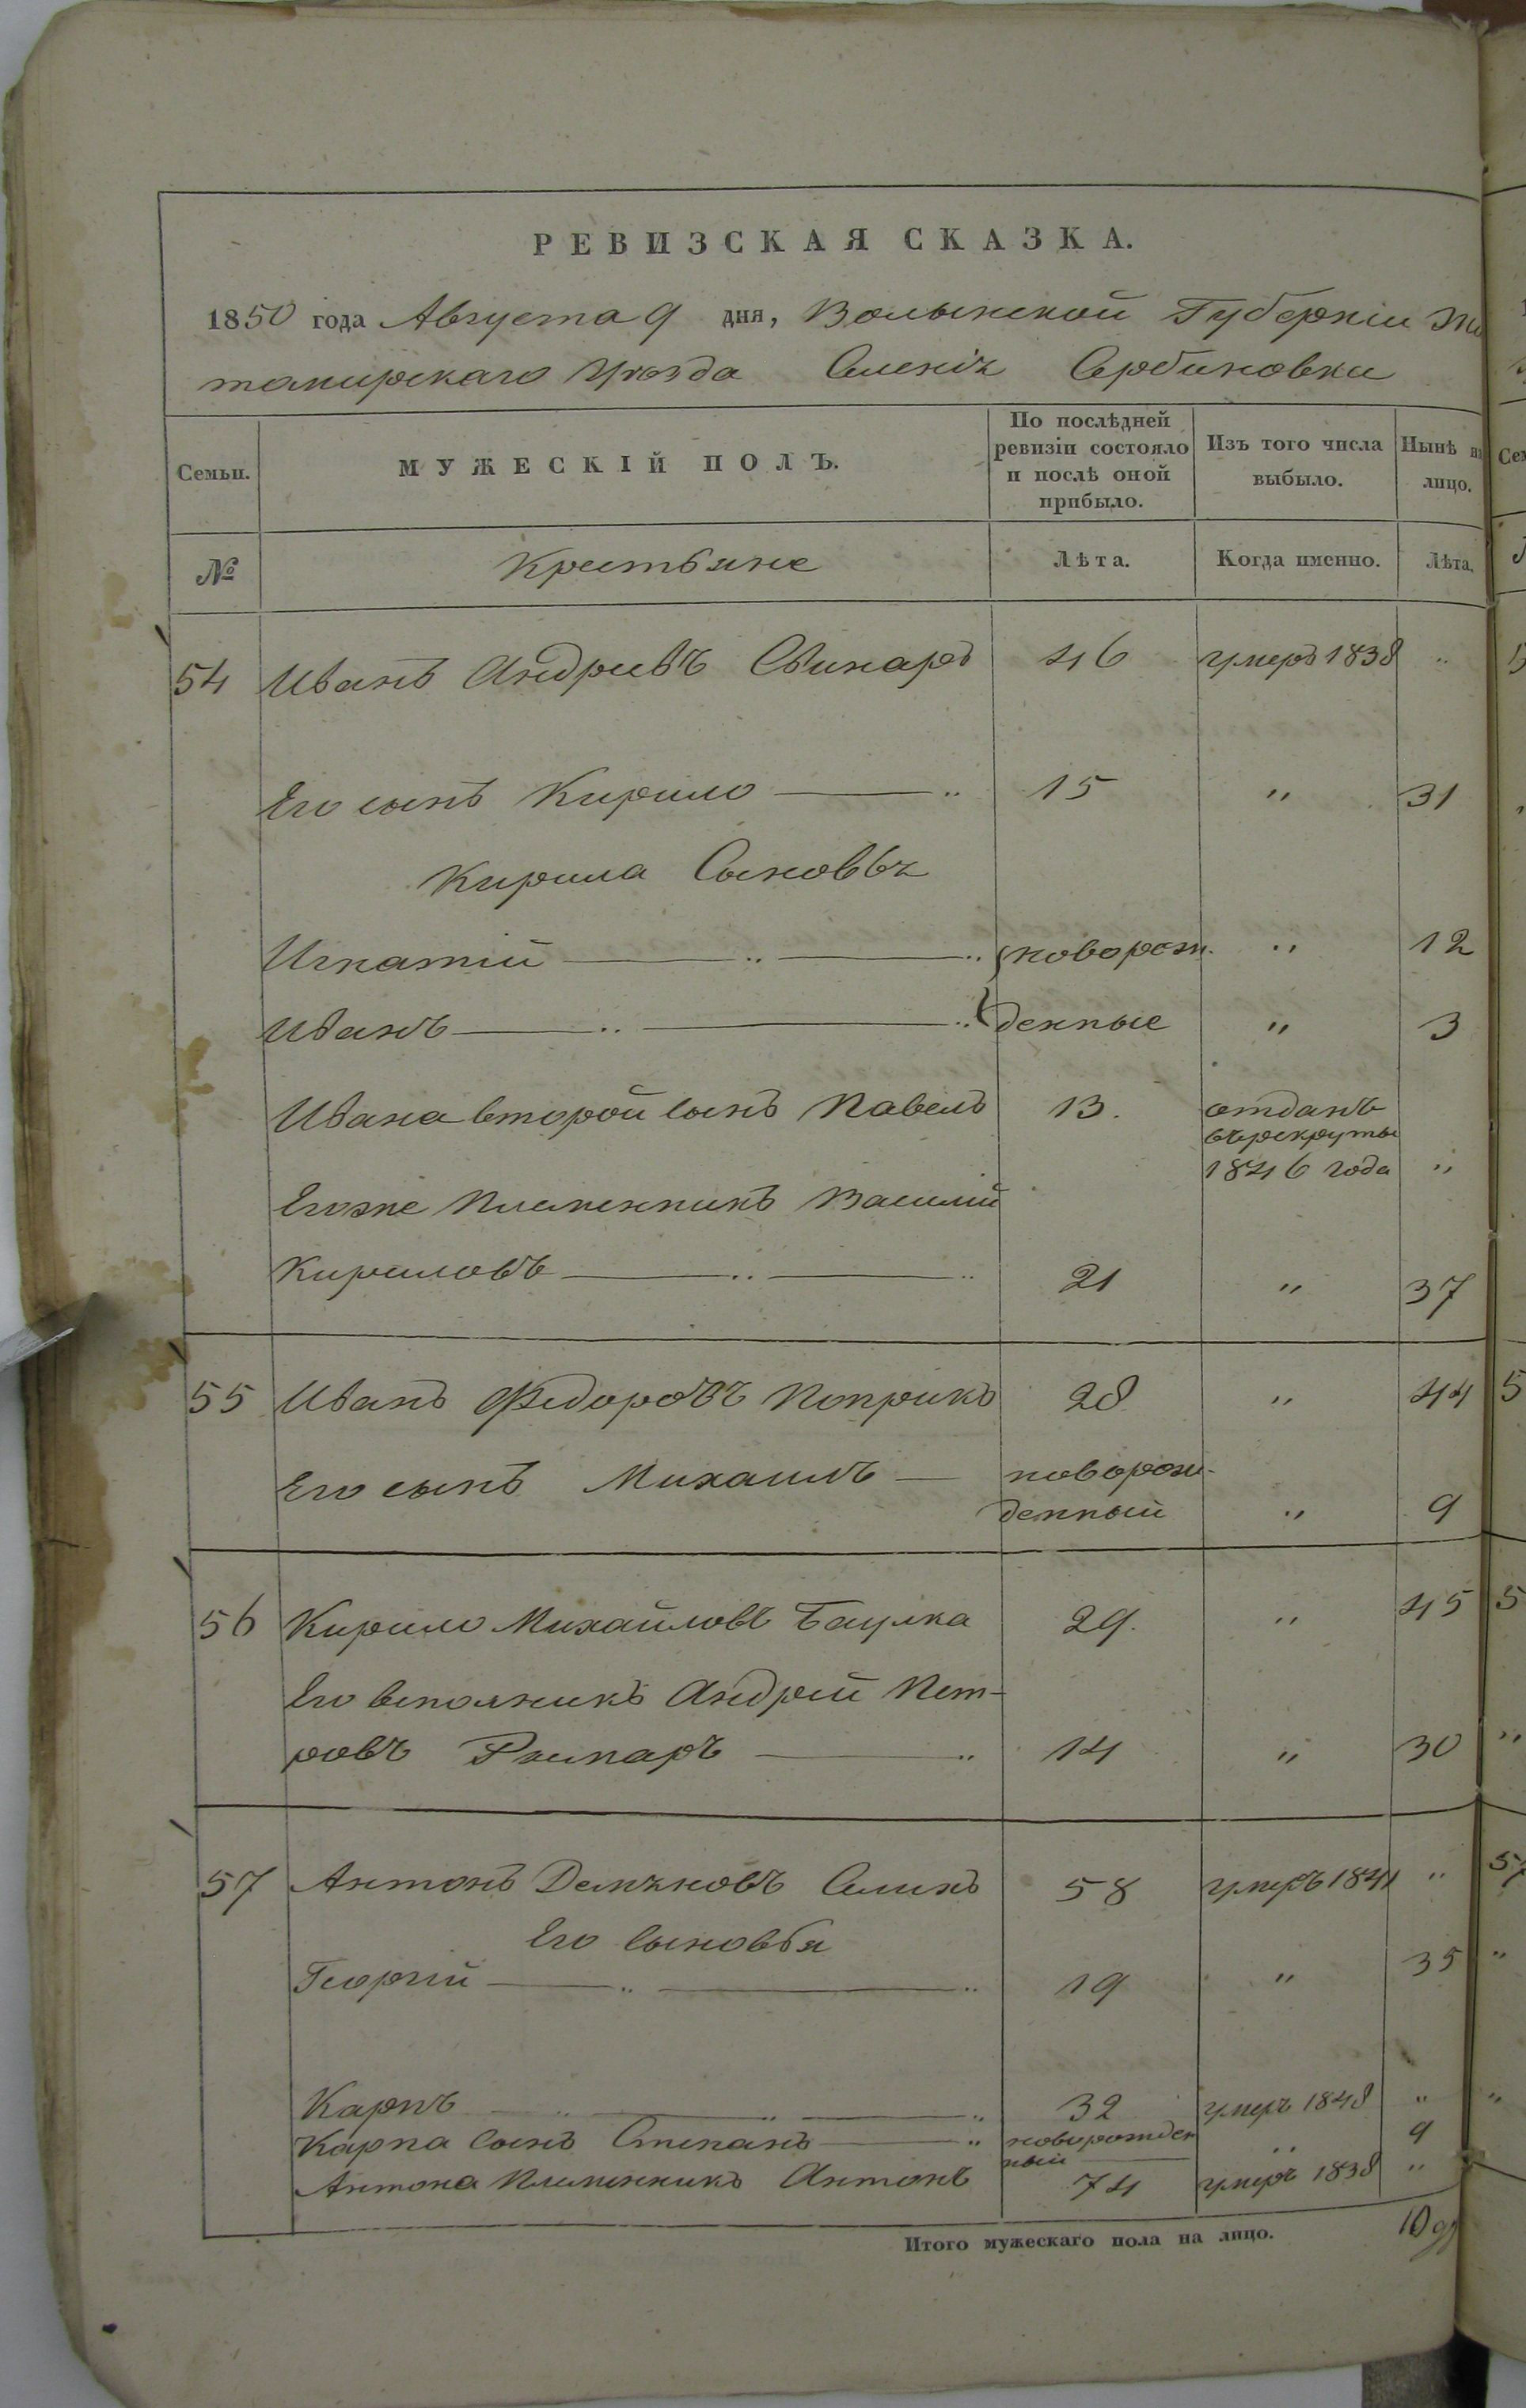 РЕВИЗСКАЯ СКАЗКА.
1850 года Августа 9 дня, Волынской Губерніи Жи
томирскаго Уѣзда Селенія Сербиновки
Семьи.
МУЖЕСКІЙ ПОЛЪ.
По послѣдней
ревизіи состояло
и послѣ оной
прибыло.
Изъ того числа
выбыло.
Нынѣ на
лицо.
№ Крестьяне Лѣта. Когда именно. Лѣта.
54 Иванъ Андріевъ Свинаръ 46 умеръ 1838 "
Его сынъ Кирило — " 15 " 31
Кирила Сыновья
Игнатій — " — " новорож- " 12
Иванъ — " — " денные " 3
Ивана второй сынъ Павелъ 13. отданъ
въ рекруты
1846 года "
Егоже Племенникъ Василій
Кириловъ — " — " 21 " 37
55 Иванъ Федоровъ 28 " 44
Его сынъ Михаилъ — новорож-
денный " 9
56 Кирило Михайловъ 29. " 45
Его Андрей Пет-
ровъ — " 14 " 30
57 Антонъ 58 умеръ 1841 "
Его Сыновья
Георгій — " — " 19 " 35
Карпъ — " — " — " 32 умеръ 1848 "
Карпа сынъ Степанъ — " новорожден
ный — " 9
Антона Племенникъ Антонъ 74 умеръ 1838 "
Итого мужескаго пола на лицо. 10